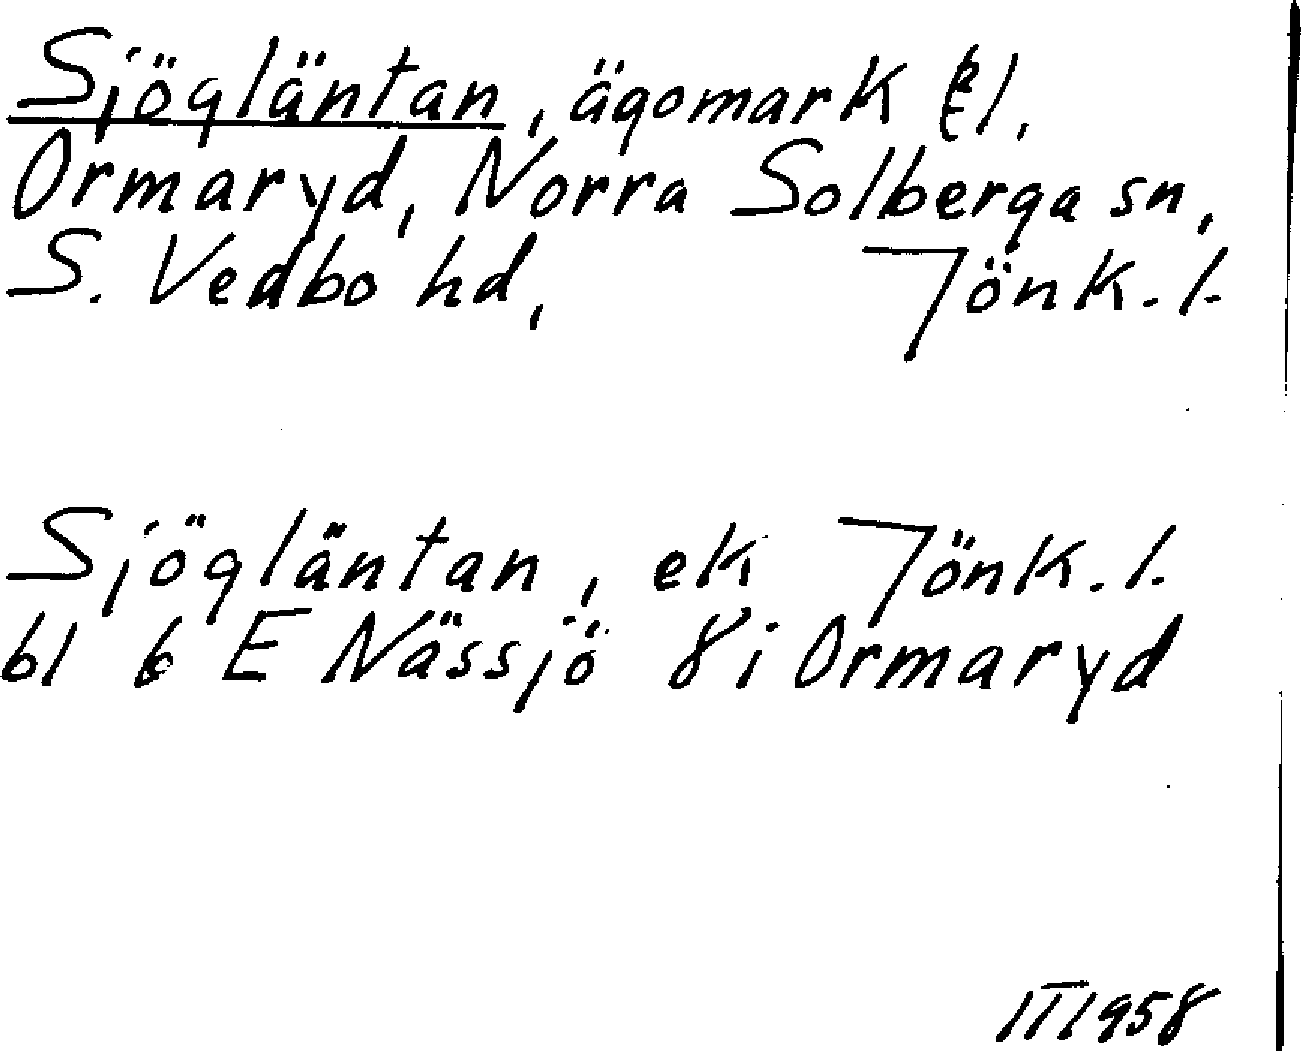 Sjögläntan, ägomark t.
Ormaryd, Norra Solberga sn,
S. Vedbo hd, Jönk. l.
Sjögläntan, ek Jönk. l.
bl 6 E Nässjö 8 i Ormaryd
1958